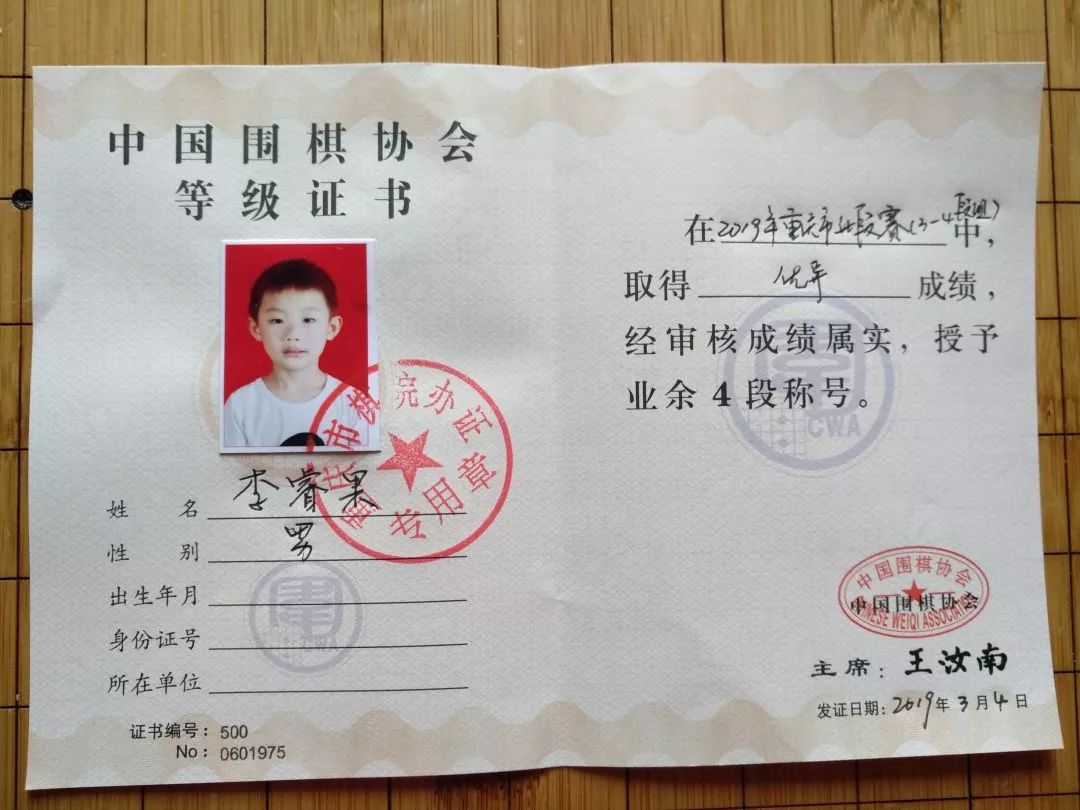 中国围棋协会
等级证书
重庆市棋院办证
专用章
姓 名 李睿果
性 别 男
出生年月
身份证号
所在单位
CWA
证书编号：500
No：0601975
在2019年重庆市升段赛(3-4段组)中，
取得 优异 成绩，
经审核成绩属实，授予
业余4段称号。
CWA
中国围棋协会
中国围棋协会
CHINESE WEIQI ASSOCIATION
主席：王汝南
发证日期：2019年3月4日